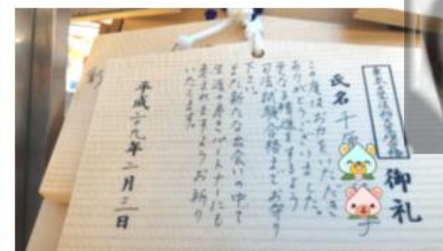 御礼
氏名 千
この度はお力をいただき
ありがとうございました。
更なる精進をするよう
司法試験合格までお守り
下さい。
また新たな出会いの中で
生涯の良きパートナーにも
恵まれますようお祈り
いたします。
平成二九年二月三日